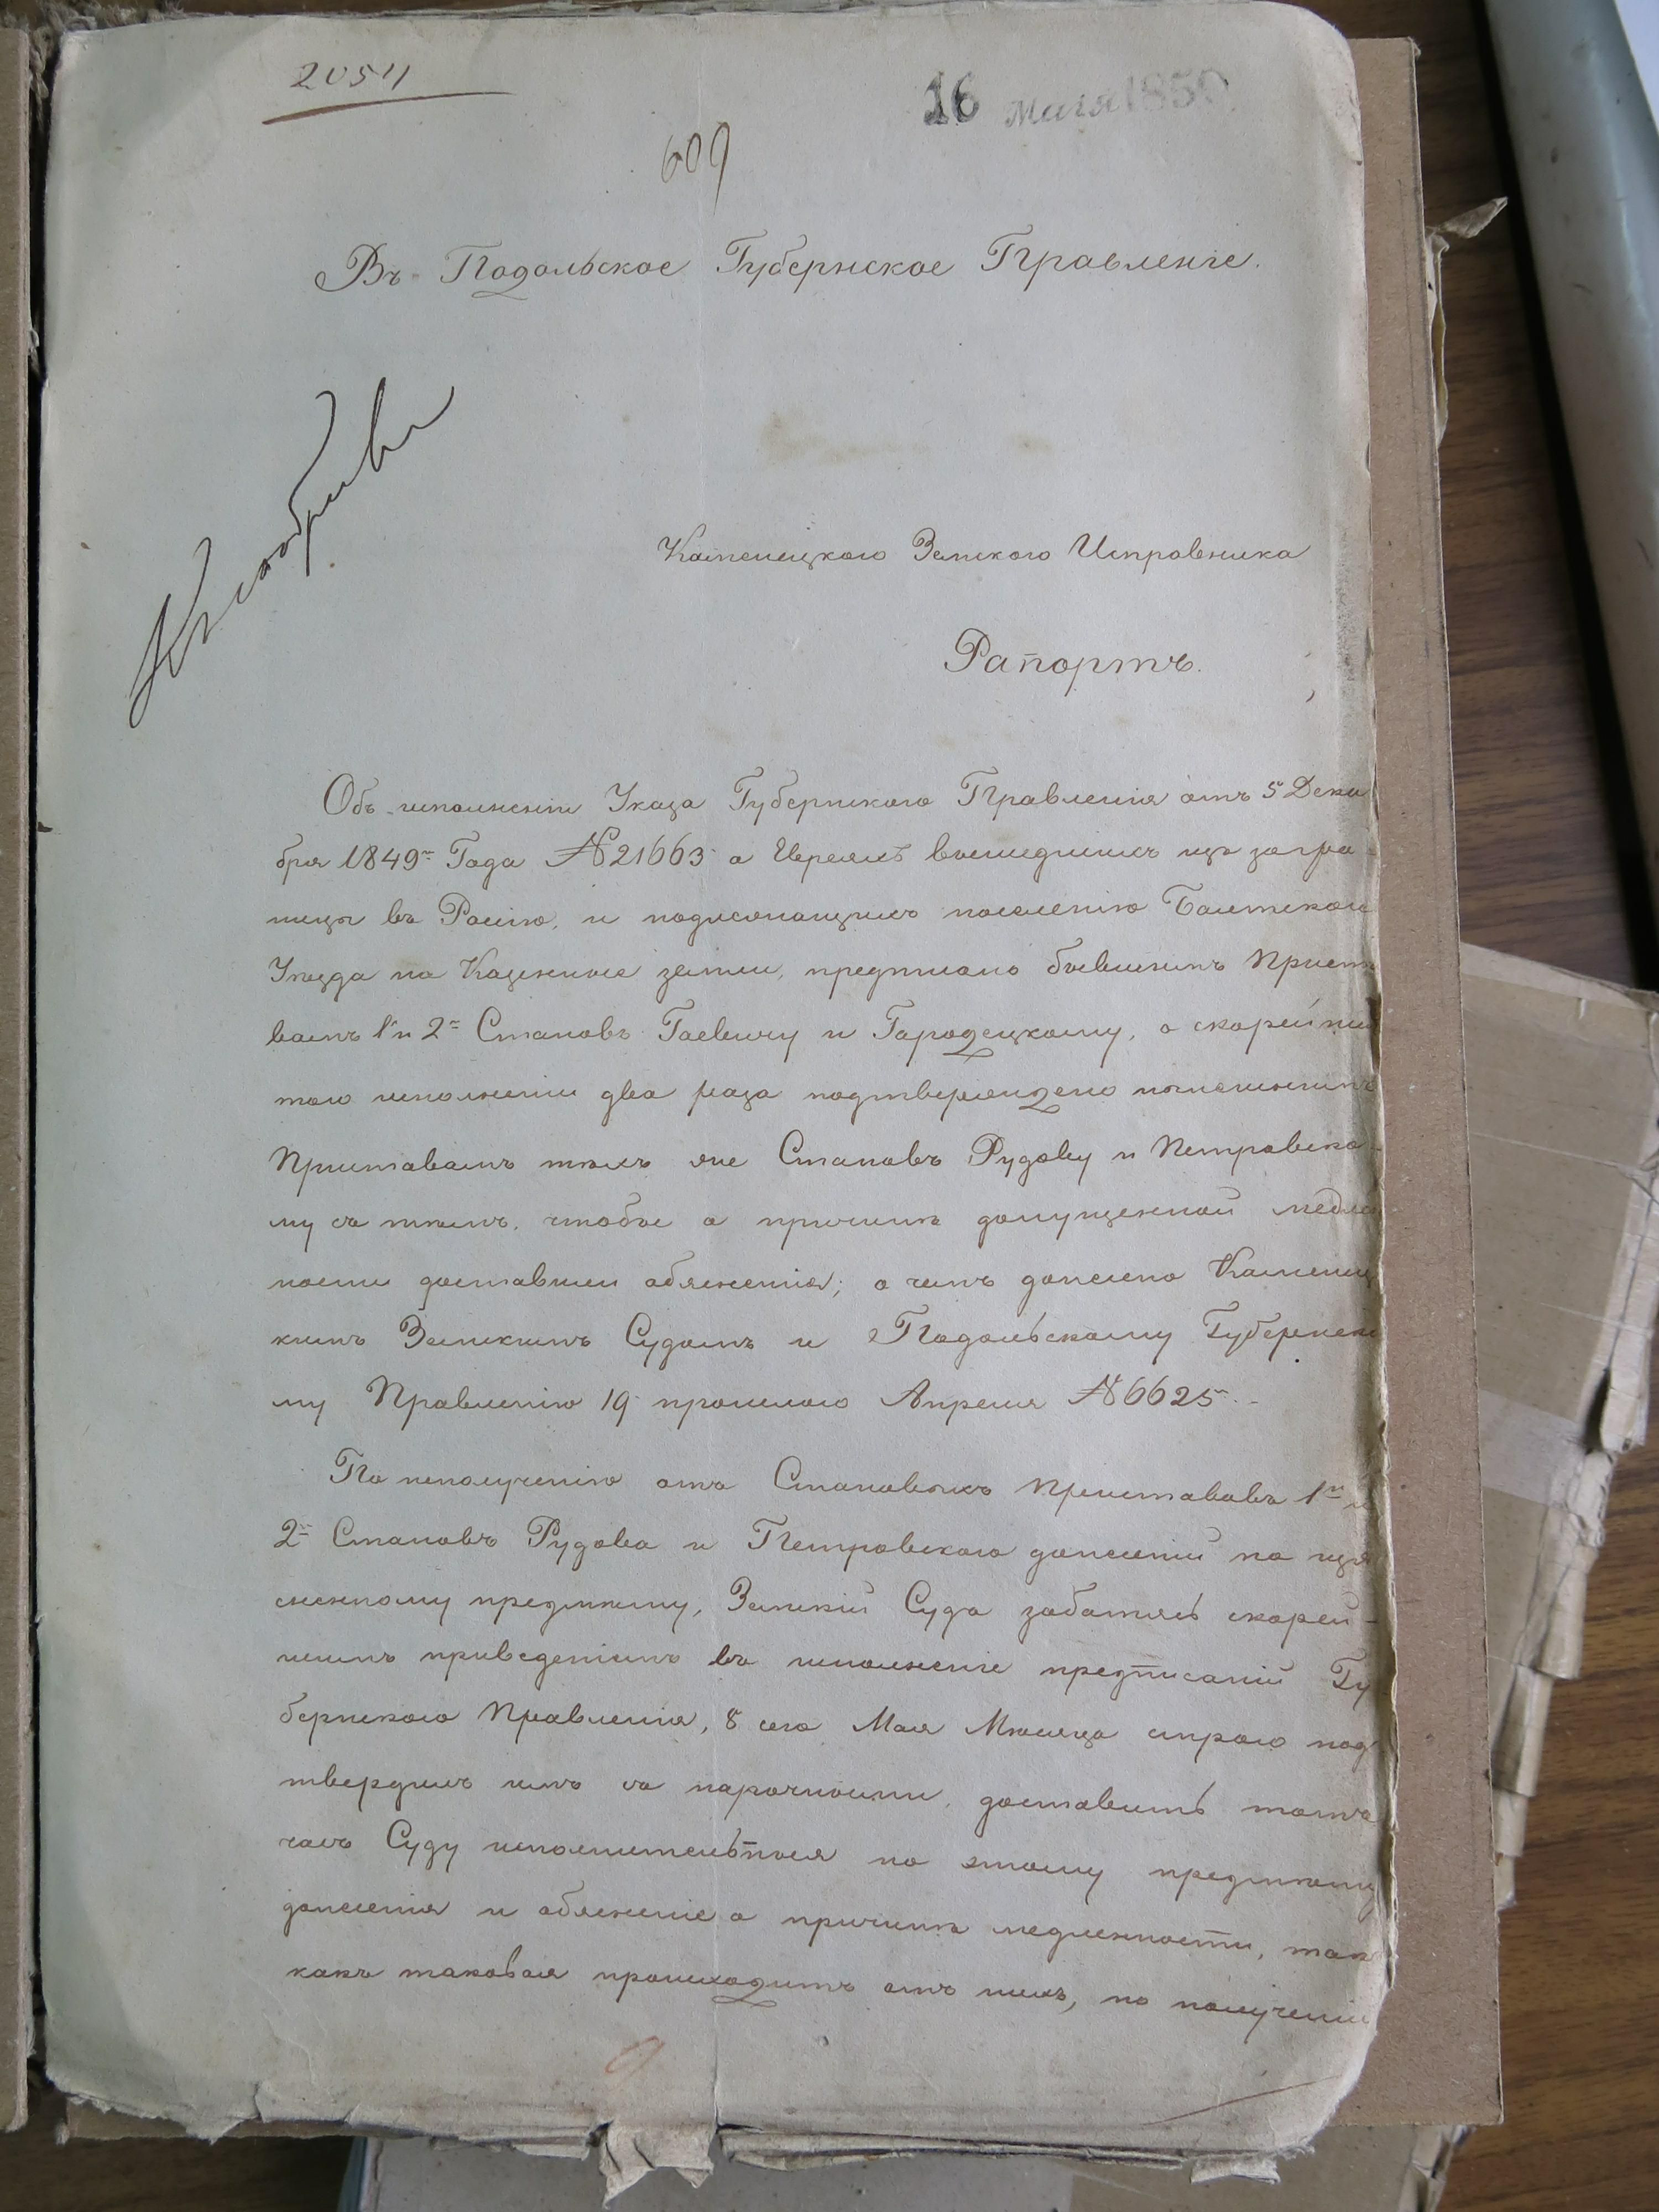 2054
16 Мая 1850
609
Въ Подольское Губернское Правленіе.
Каменецкаго Земскаго Исправника
Рапортъ.
Объ исполненіи Указа Губернскаго Правленія отъ 5 Дека
бря 1849го Года №21663 о Евреяхъ вышедшихъ изъ загра
ницы въ Росію, и подлежащихъ поселенію Балтскаго
Уѣзда на Казенные земли, предписано бывшимъ Приста
вамъ 1 и 2го Становъ Гаевичу и Городецкому, о скорѣйше
мъ исполненіи два раза подтверждено нынешнимъ
Приставамъ тѣхъ же Становъ Рудову и Петровско
му съ тѣмъ, чтобы о причинѣ допущенной медле
ности доставили обяснения; о чемъ донесено Каменец
кимъ Земскимъ Судомъ и Подольскому Губернско
му Правленію 19 прошлаго Апреля №6625.
По неполученію отъ Становыхъ Приставовъ 1го и
2го Становъ Рудова и Петровского донесеній по изъя
сненному предмету, Земскій Судъ заботясь скорей-
шимъ приведеніемъ въ исполненіе предписаній Гу
бернскаго Правленія, 8 сего Мая Месяца строго под
твердилъ имъ съ нарочными, доставить тотъ
часъ Суду исполнительныя по этому предмету
донесенія и обясненіе о причинѣ медленности, такъ
какъ таковая происходитъ отъ нихъ, по полученіи